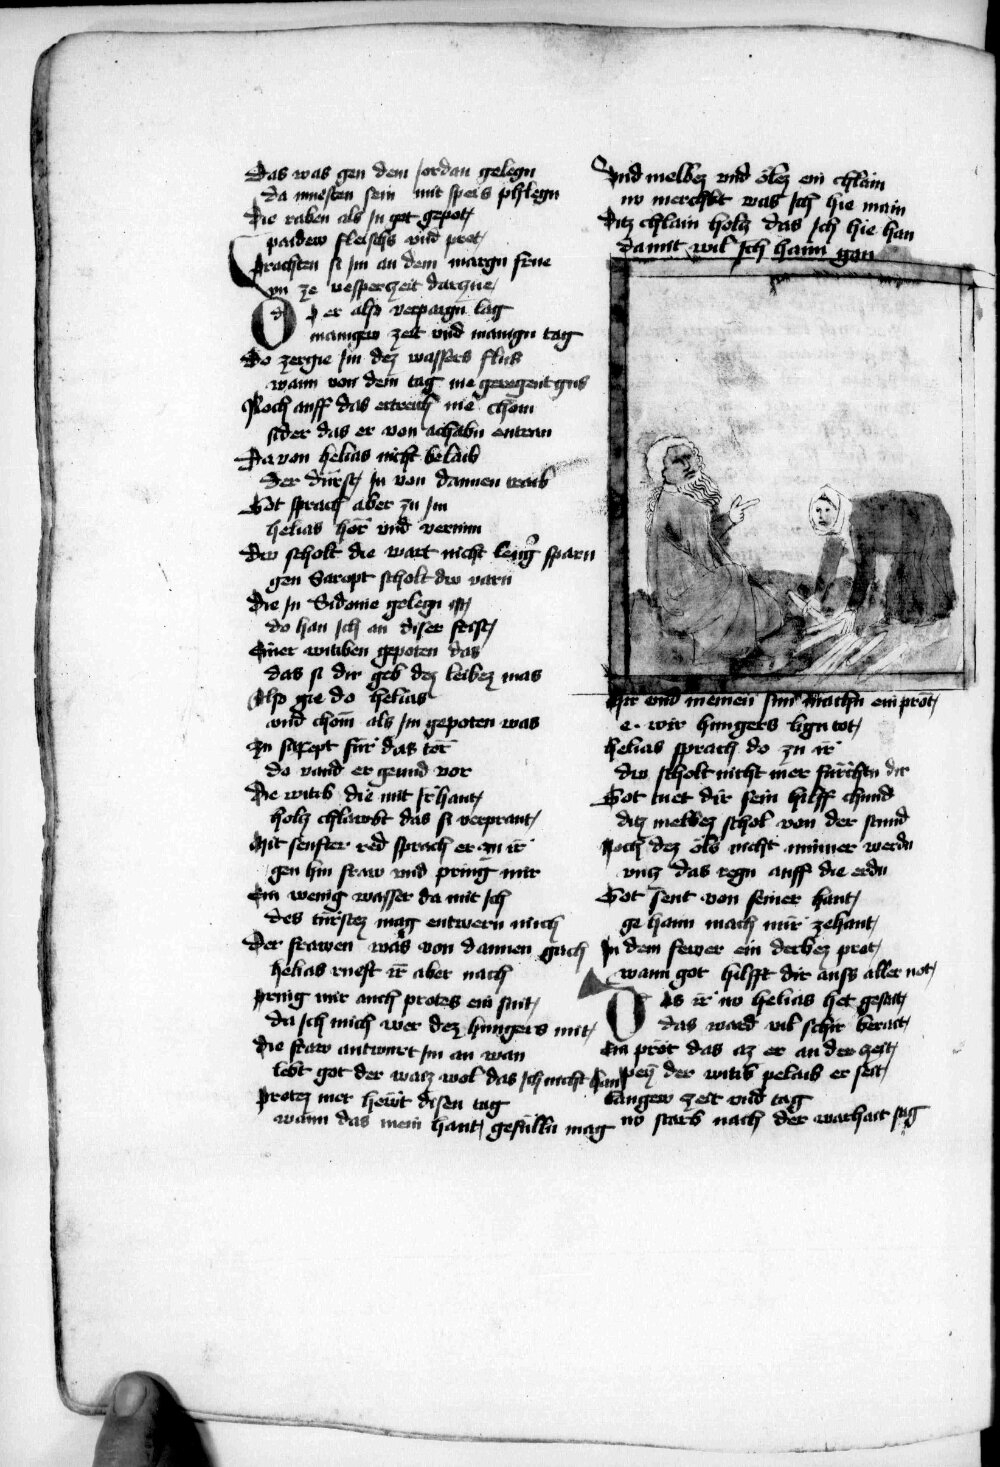 Das was gen dem jordan gelegn
da muesten sein mit speis phlegn
Die raben als jn got gepot
paidew fleischs vnd prot
Prachten si jm an dem margn frue
vn ze vesperczeit darzue
Do er also verpargn lag
manigew zeit vnd manign tag
Do zergie jm dez wassers flus
wann von dem tag nie
Noch auff das ertreich nie chom
sider das er von achabn entran
Da von helias nicht belaib
Der dürst jn von dannen traib
Got sprach aber zu jm
helias hör vnd vernim
Dw scholt die vart nicht leng sparn
gen Saropt scholt dw varn
Die jn Sidonie gelegn ist
do han ich an diser frist
Einer witiben gepoten das
das si dir geb dez leibez mas
Also gie do helias
vnd chom als jm gepoten was
Zu sarept für das tor
do vand er geund vor
Die witib die mit jr hant
holtz chlawbt das si verprant
Mit senfter red sprach er zu ir
gen hin fraw vnd pring mir
Ein wenig wasser da mit ich
des türstez mag entwern mich
Der frawen was von dannen gach
helias rueft ir aber nach
Pring mir auch protes ein snit
da ich mich wer dez hungers mit
Die fraw antwurt jm an wan
lebt got der waiz wol das ich nicht han
Protez mer hewt disen tag
wann das mein hant gefülln mag
Vnd melbez vnd ölez ein chlain
nv merchkt was ich hie main
Ditz chlain holtz das ich hie han
damit wil ich haim gan
Mir vnd meinem sun machn ein prot
e wir hungers lign tot
helias sprach do zu ir
dw scholt nicht mer fürchtn dir
Got tuet dir sein hilff chund
ditz melbez schol von der stund
Noch dez öls nicht minner werdn
vntz das regn auff die erdn
Got sent von seiner hant
ge haim mach mir zehant
In dem fewer ein derbez prot
wann got hilfft dir auss aller not
Das ir nv helias het gesait
das ward vil schir berait
Ein prot das az er an der zeit
pey der witib pelaib er seit
Langew zeit vnd tag
nv starb nach der warhait sag